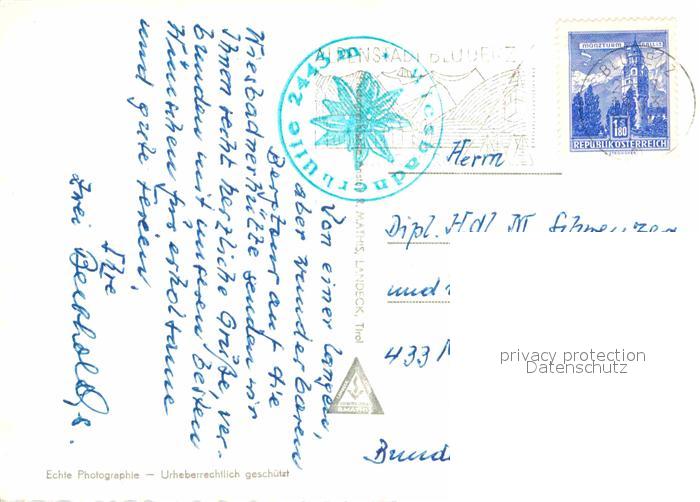 Von einer langen,
aber wunderbaren
Bergtour auf die
Wiesbadnerhütte senden wir
Ihnen recht herzliche Grüße, ver-
bunden mit unseren besten
Wünschen für erholsame
und gute Ferien.
Ihre
drei Berthold's.
Echte Photographie — Urheberrechtlich geschützt
R. MATHIS, LANDECK, Tirol
ALPENSTADT BLUDENZ
Wiesbadnerhütte 2443 m
MÜNZTURM HALL I. T.
S 1.80
REPUBLIK ÖSTERREICH
BLUDENZ
Herrn
Dipl. Hdl M
und
433 M
privacy protection
Datenschutz